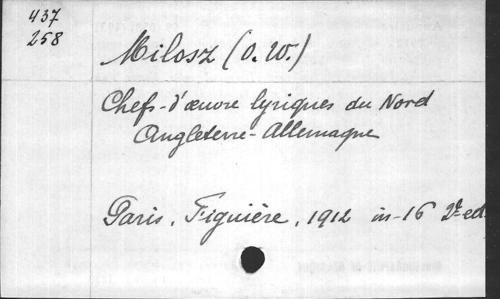 437
258
Milosz (O. W.)
Chefs-d'œuvre lyriques du Nord
Angleterre-Allemagne
Paris, Figuière, 1912 in-16 2e ed.